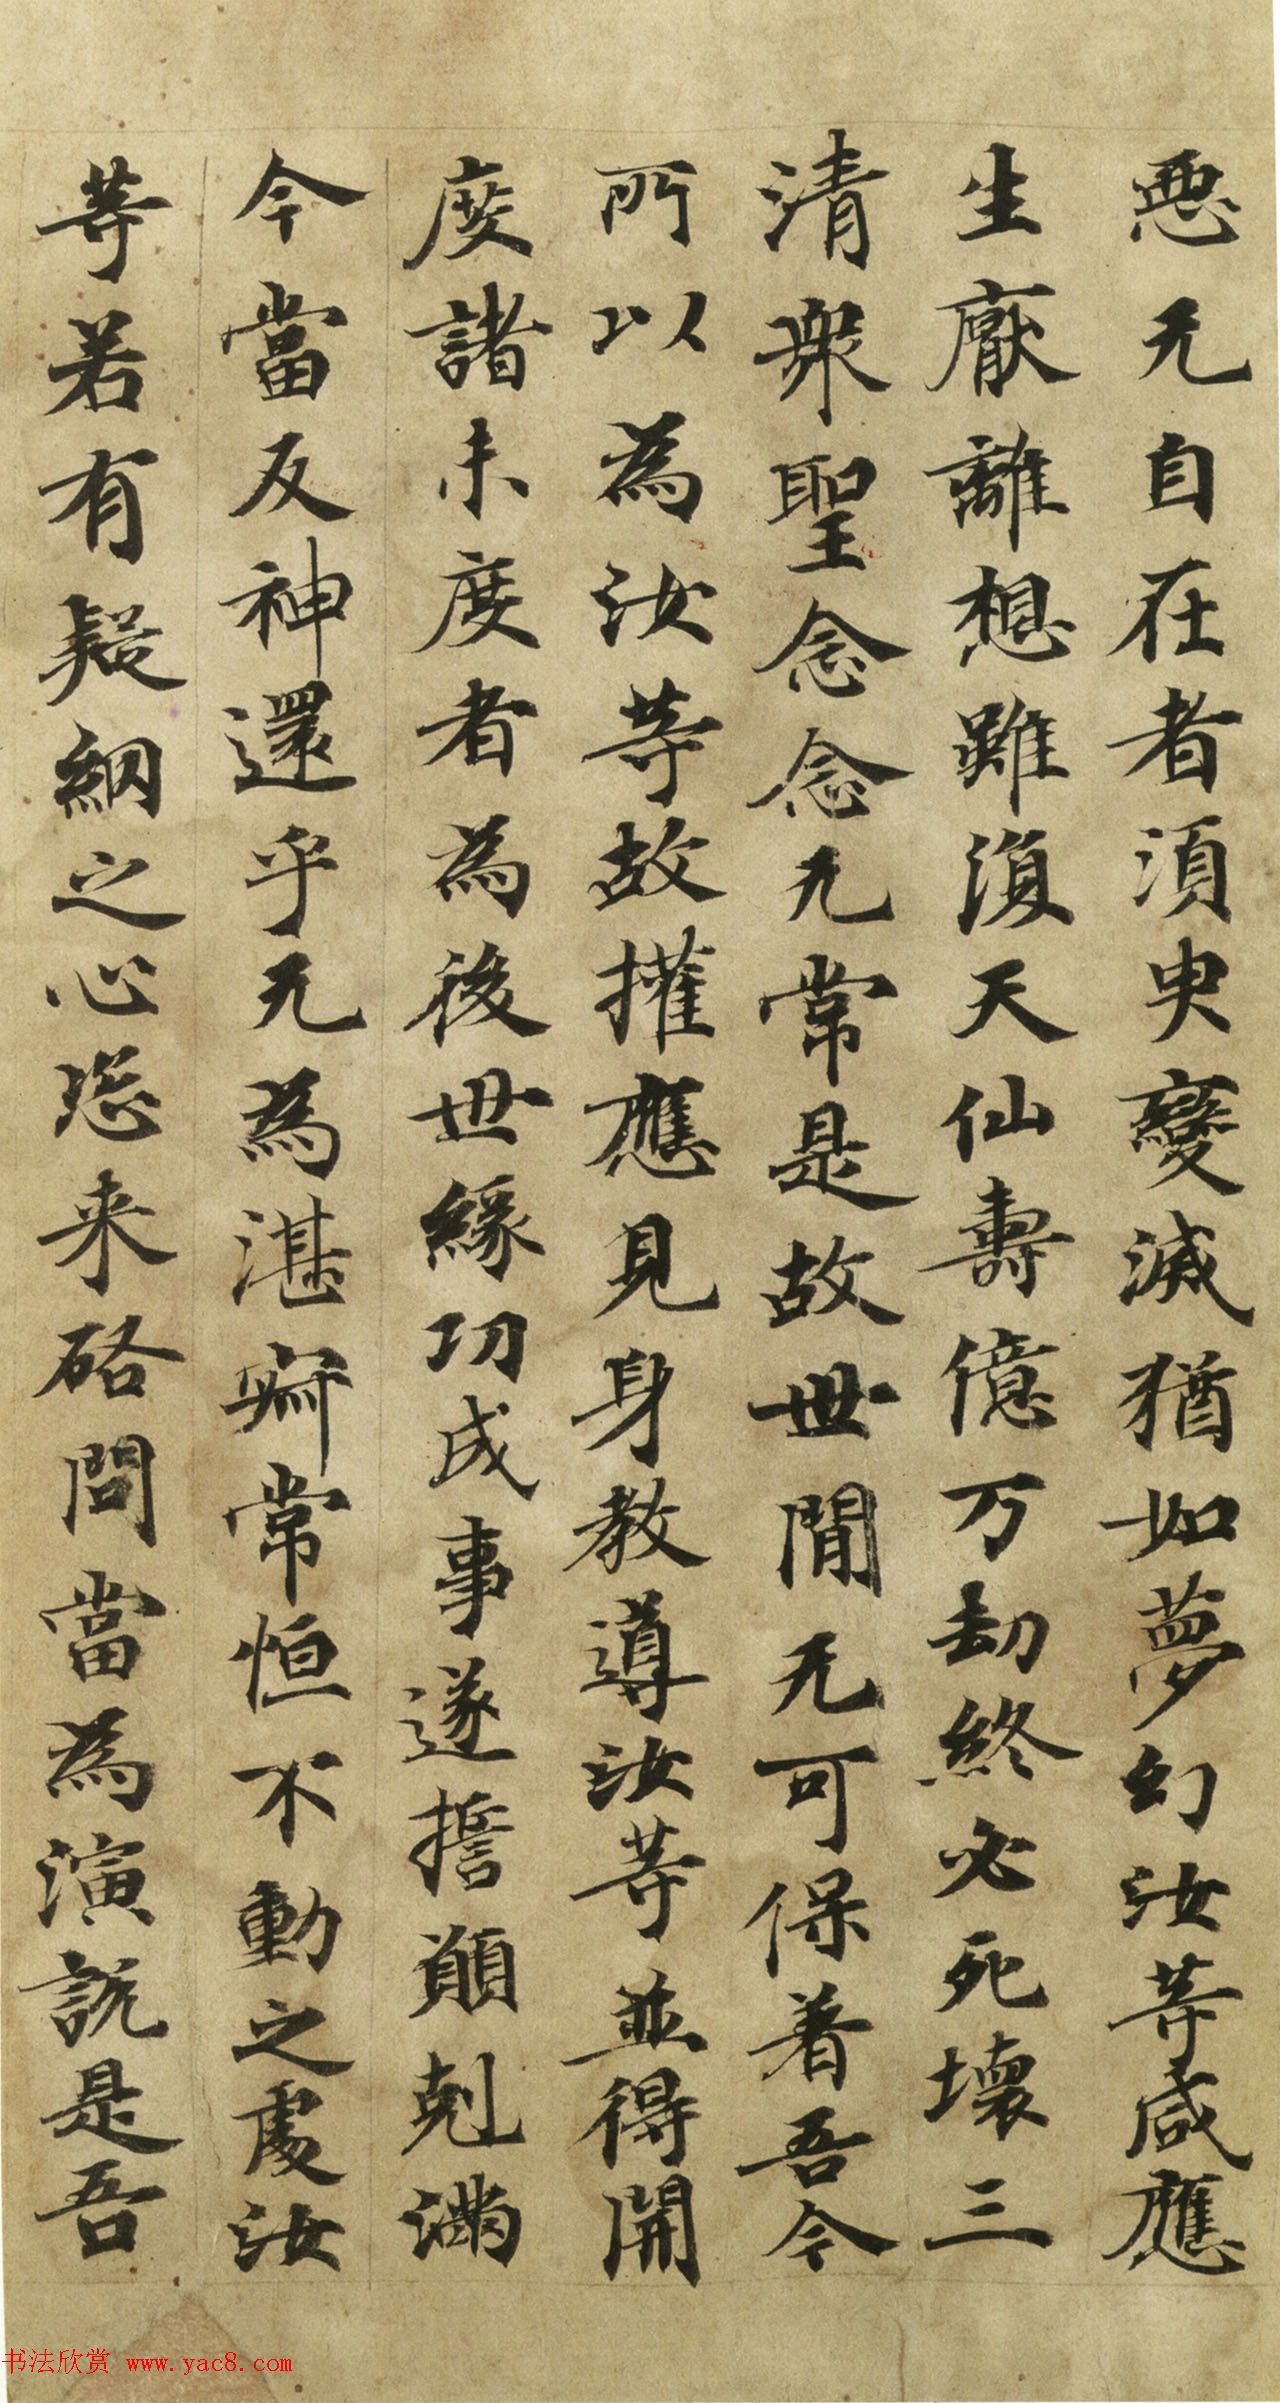 惡无自在者湏臾變滅猶如夢幻汝等咸應
生厭離想雖湏天仙壽億万劫終必死壞三
清衆聖念念无常是故世間无可保着吾今
所以為汝等故權應見身教導汝等並得開
度諸未度者為後世緣功成事遂誓願剋滿
今當反神還乎无為湛寂常恒不動之處汝
等若有疑網之心恣来諮問當為演說是吾
书法欣赏 www.yac8.com